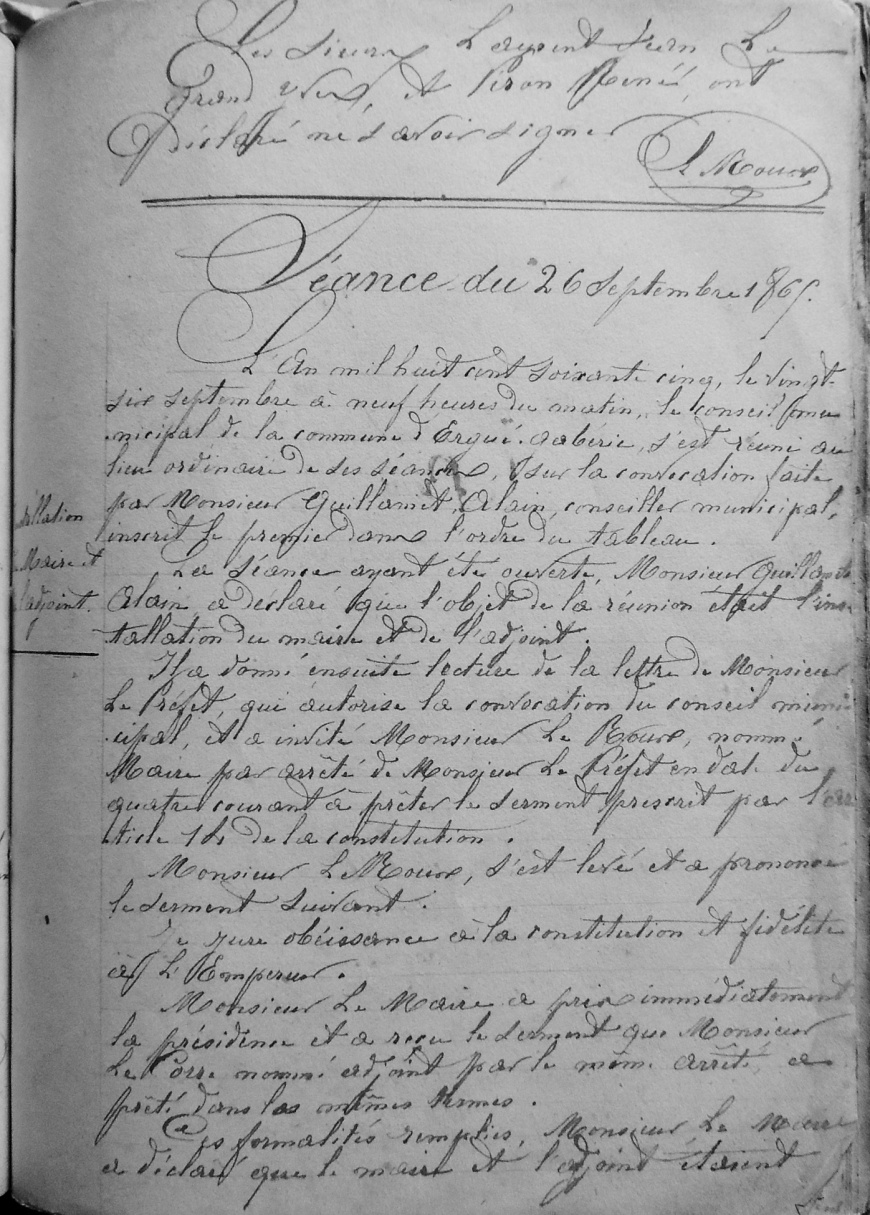 Les sieurs Laurent Jean Le
Grand Yves, et Piron René, ont
Déclaré ne savoir signer
Le Roux
Séance du 26 Septembre 1865.
L'An mil huit cent soixante cinq, le vingt
six septembre à neuf heures du matin, le conseil mu
nicipal de la commune d'Ergué-Gabéric, s'est réuni au
lieu ordinaire de ses séances, sur la convocation faite
par Monsieur Guillamet, Alain, conseiller municipal,
inscrit le premier dans l'ordre du tableau.
La séance ayant été ouverte, Monsieur Guillamet
Alain, a déclaré que l'objet de la réunion était l'ins
tallation du maire et de l'adjoint.
tallation
Maire et
l'adjoint.
Il a donné ensuite lecture de la lettre de Monsieur
Le Préfet, qui autorise la convocation du conseil muni
cipal, et a invité Monsieur Le Roux, nommé
Maire par arrêté de Monsieur Le Préfet en date du
quatre courant à prêter le serment prescrit par l'ar
ticle 14 de la constitution.
Monsieur Le Roux, s'est levé et a prononcé
le serment suivant.
Je jure obéissance à la constitution et fidélité
à L'Empereur.
Monsieur Le Maire a pris immédiatement
la présidence et a reçu le serment que Monsieur
Le Corre nommé adjoint par le même arrêté, a
prêté dans les mêmes termes.
Ces formalités remplies, Monsieur Le Maire
a déclaré que le maire et l'adjoint étaient